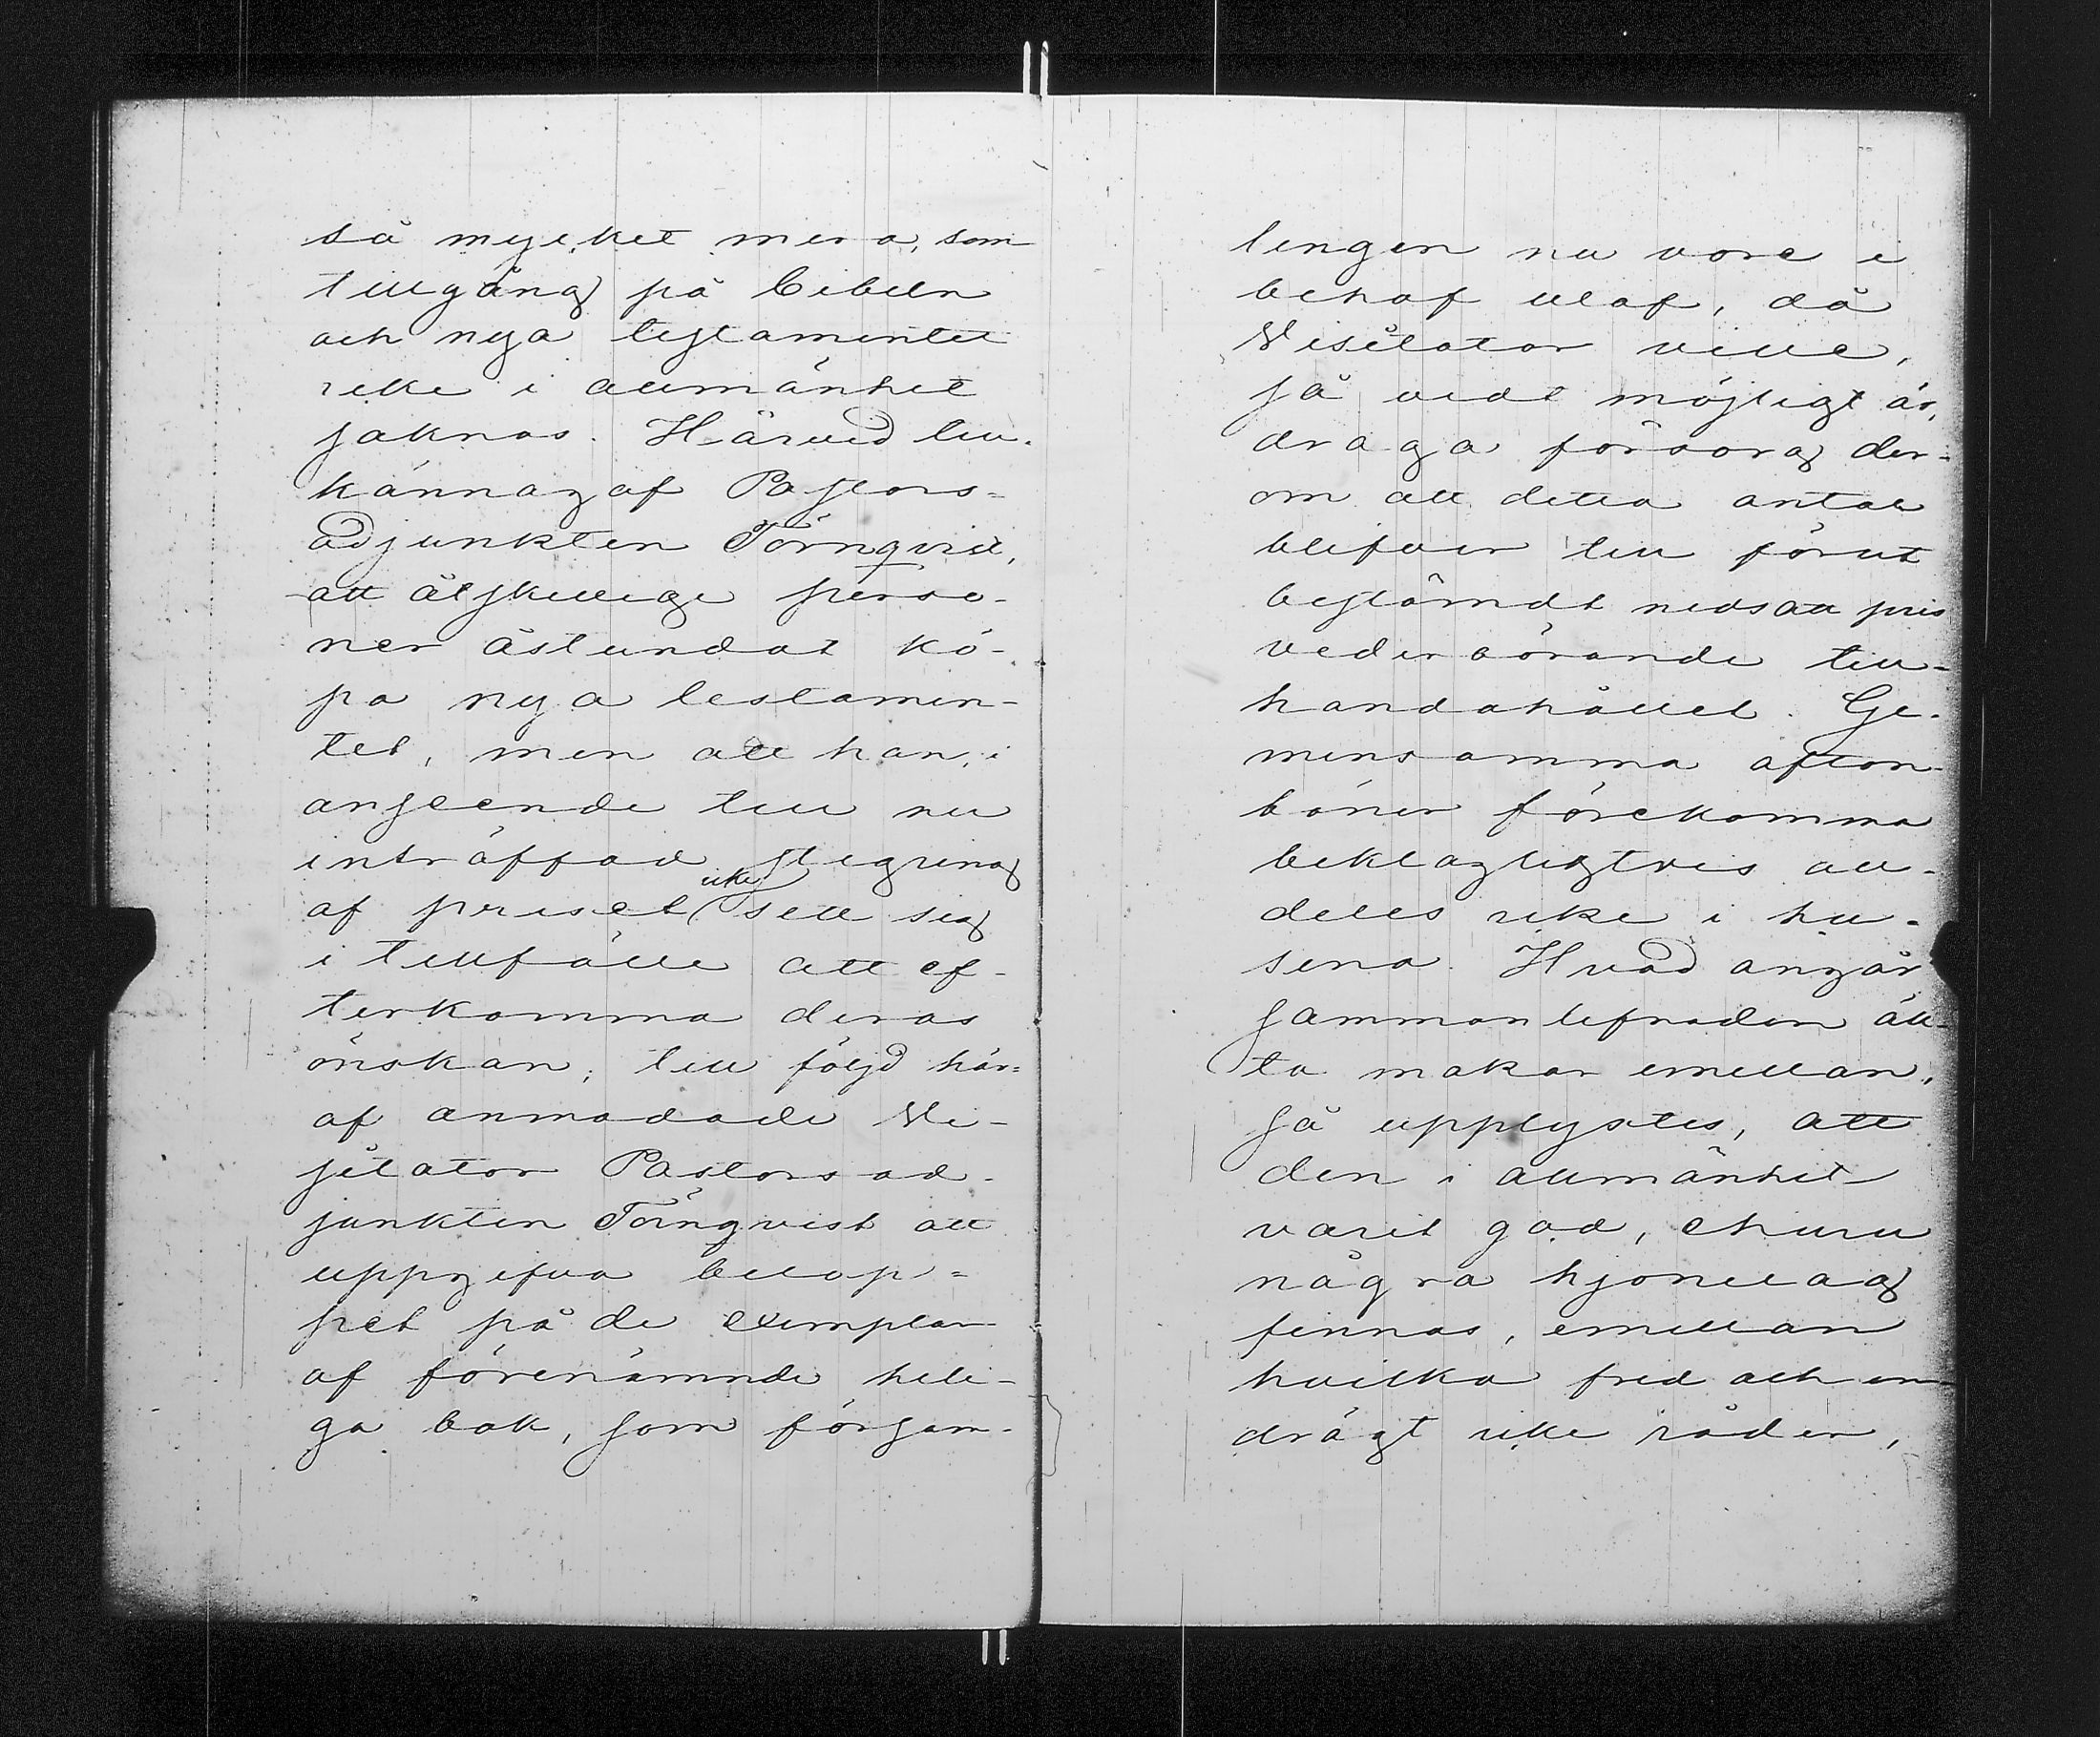 så mycket mera, som
tillgång på bibeln
och nya testamentet
icke i allmänhet
saknas. Härvid till-
kännagaf Pastors-
adjunkten Törnqvist,
att åtskillige perso-
ner åstundat kö-
pa nya testamen-
tet, men att han, i
anseende till nu
inträffad stegring
af priset icke sett sig
i tillfälle att ef-
terkomma deras
önskan; till följd här-
af anmodade Vi-
sitator Pastorsad-
junkten Törnqvist att
uppgifva belop-
pet på de exemplar
af förenämnde heli-
ga bok, som försam-
lingen nu vore i
behof utaf, då
Visitator ville,
så vidt möjligt är,
draga försorg der-
om att detta antal
blifver till förut
bestämdt nedsatt pris
vederbörande till-
handahållet. Ge-
mensamma afton-
böner förekomma
beklagligtvis all-
deles icke i hu-
sena. Hvad angår
sammanlefnaden äk-
ta makar emellan,
så upplystes, att
den i allmänhet
varit god, ehuru
några hjonelag
finnas, emellan
hvilka fred och en-
drägt icke råder,